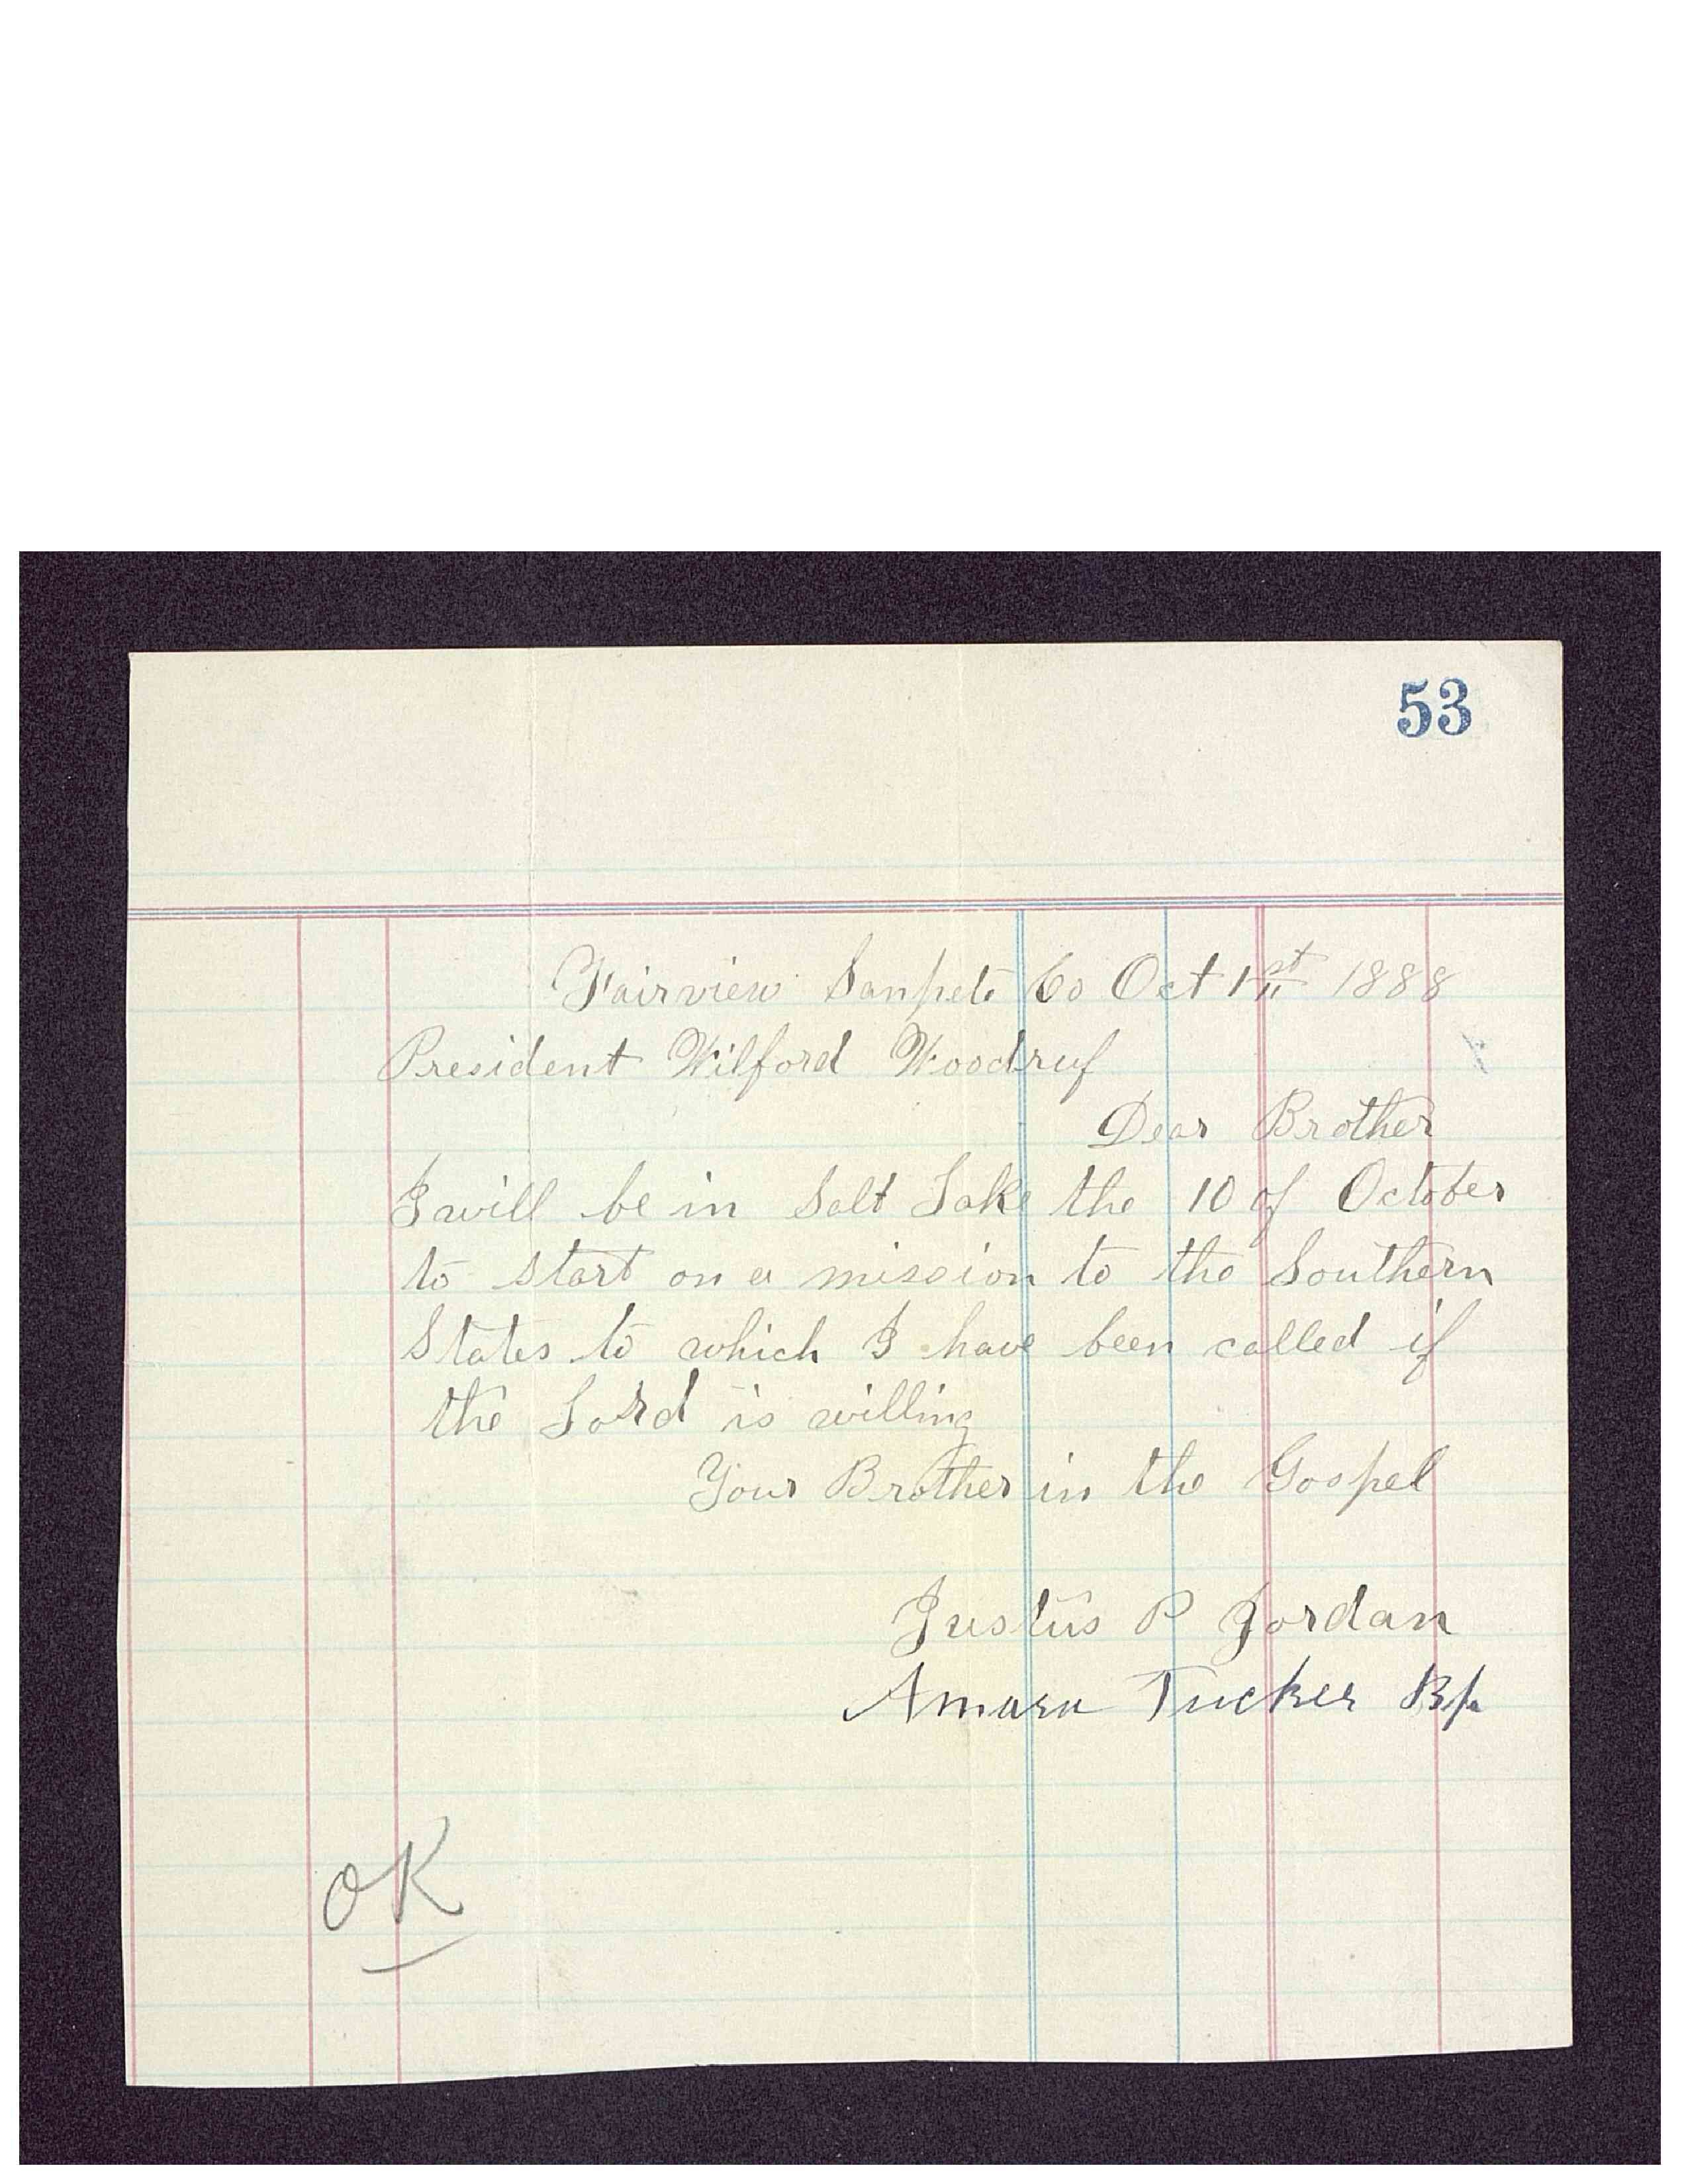 53
Fairview Sanpete Co Oct 1st 1888
President Wilford Woodruf
Dear Brother
I will be in Salt Lake the 10 of October
to start on a mission to the Southern
States to which I have been called if
the Lord is willing
Your Brother in the Gospel
Justus P Jordan
Amasa Tucker Bp
OK